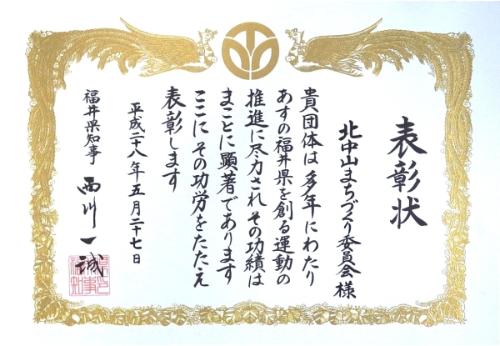 表彰状
北中山まちづくり委員会様
貴団体は多年にわたり
あすの福井県を創る運動の
推進に尽力され その功績は
まことに顕著であります
ここに その功労をたたえ
表彰します
平成二十八年五月二十七日
福井県知事 西川一誠